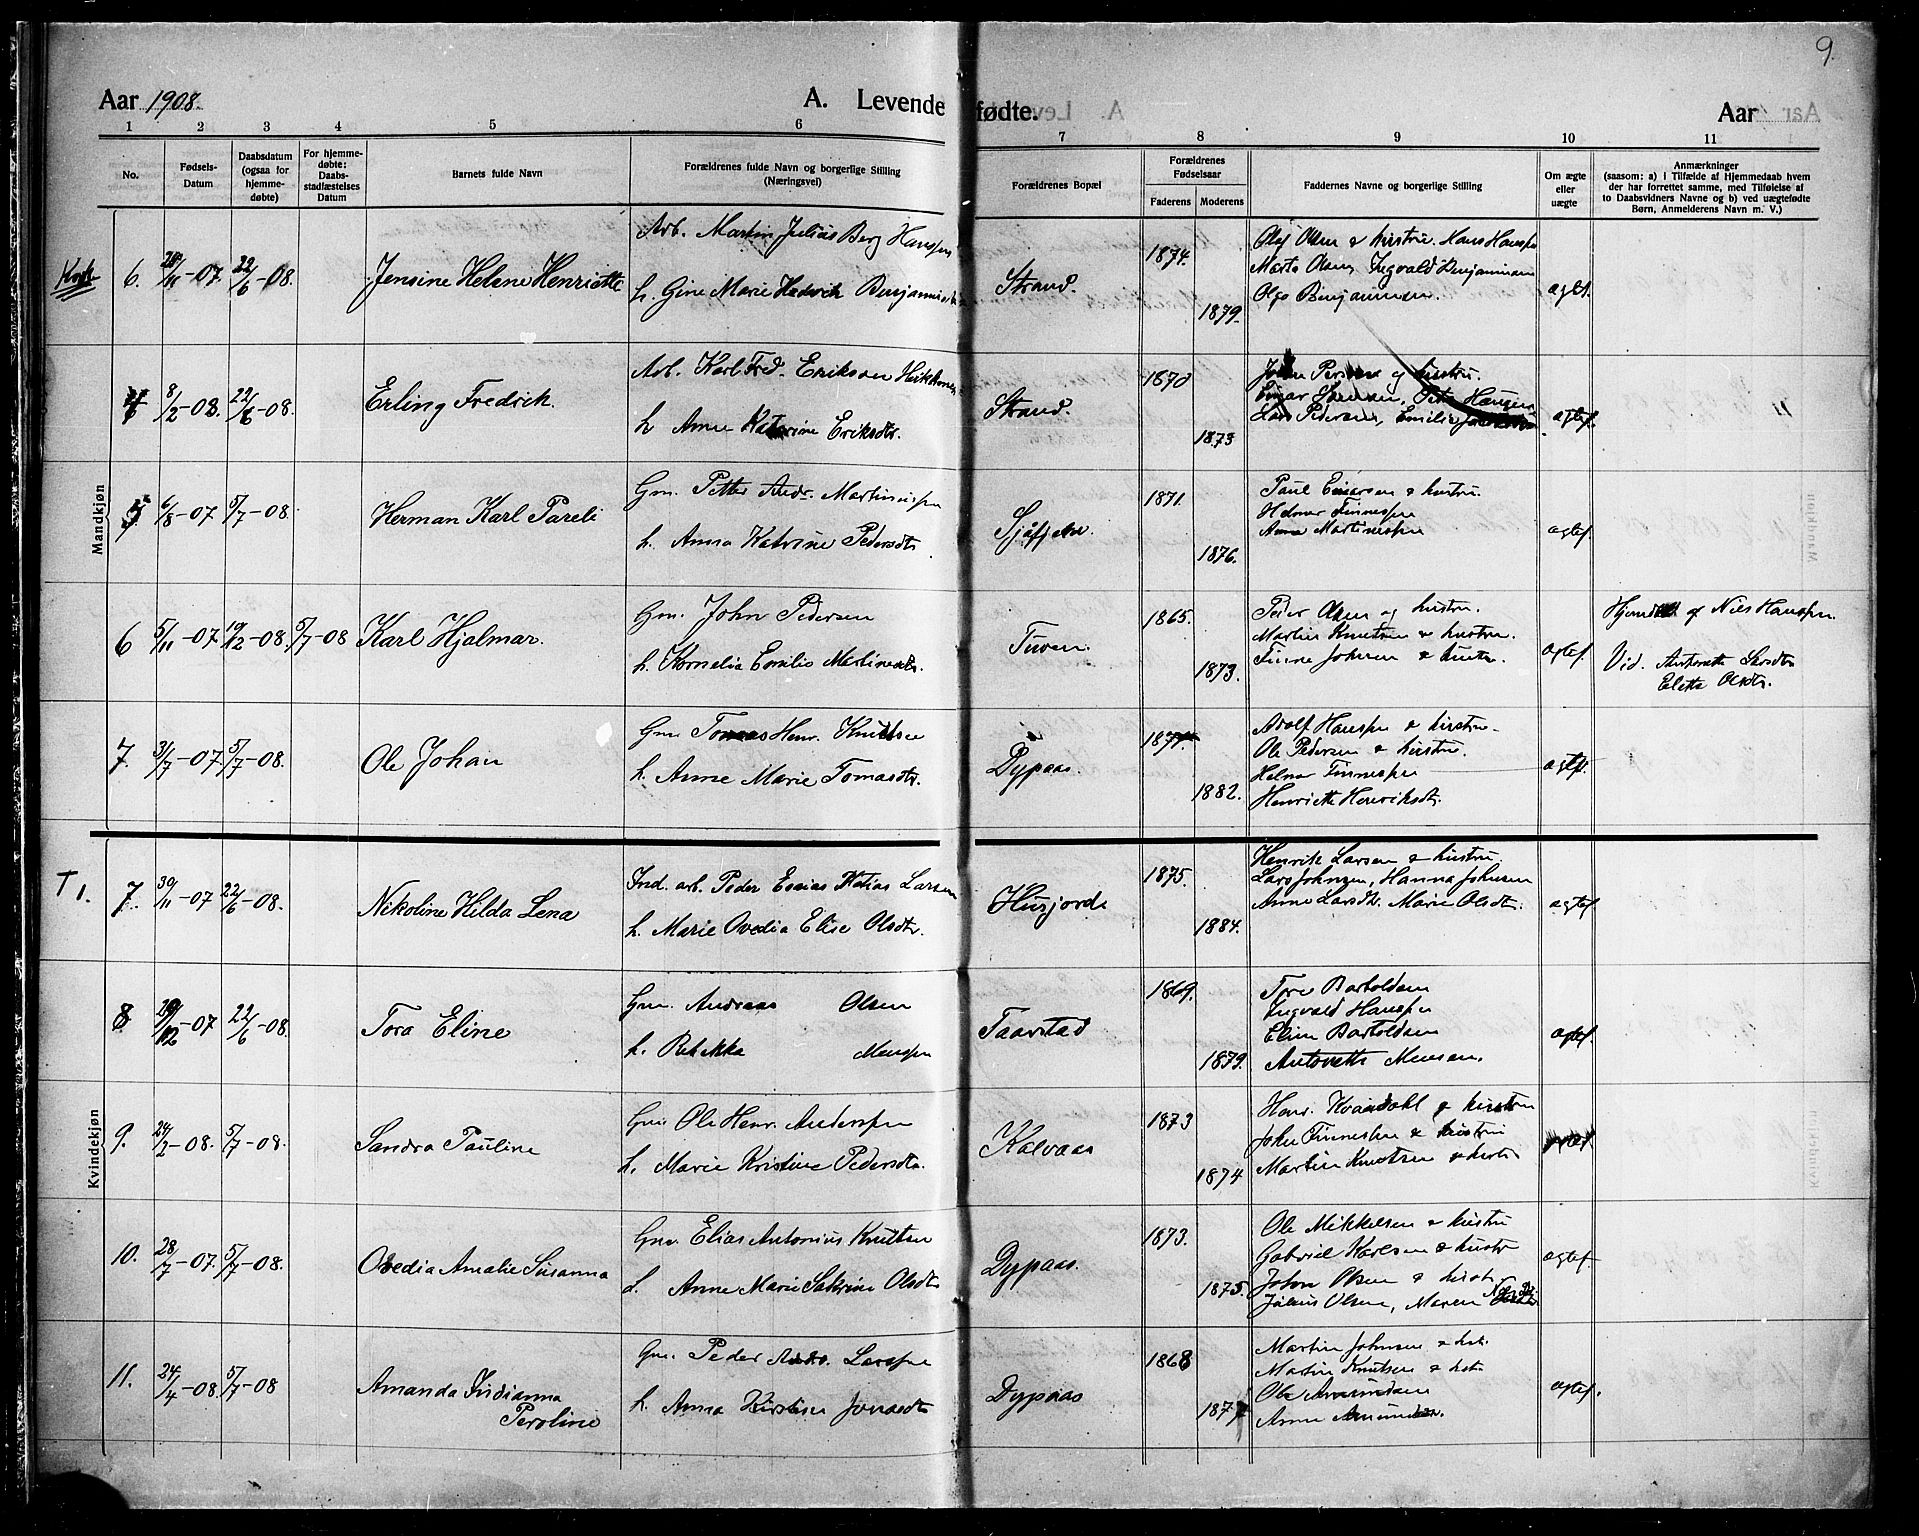 9.
Aar 1908. A. Levende fødte. Aar
1 2 3 4 5 6 7 8 9 10 11
No.
Fødsels-Datum
Daabsdatum (ogsaa for hjemme-døbte)
For hjemme-døbte: Daabs-stadfæstelses Datum
Barnets fulde Navn
Forældrenes fulde Navn og borgerlige Stilling (Næringsvei)
Forældrenes Bopæl
Forældrenes Fødselsaar
Faderens Moderens
Faddernes Navne og borgerlige Stilling
Om ægte eller uægte
Anmærkninger
(saasom: a) i Tilfælde af Hjemmedaab hvem
der har forrettet samme, med Tilføielse af
to Daabsvidners Navne og b) ved uægtefødte
Børn, Anmelderens Navn m. V.)
Mandkjøn
6. /11-07 22/6-08. Jensine Helene Henriette
Arb. Martin Julius Berg Hanssen
h. Gine Marie Hedvik
Strand. 1874. 1879.
Olaf Olsen & hustru. Hans Hanssen
Marta Olsen, Ingvald Benjaminsen
Olga Benjaminsen.
ægtef.
8/2-08. 22/6-08. Erling Fredrik.
Arb. Karl Fred. Eriksen
h. Anne Katrine Eriksdtr.
Strand. 1870 1873
Persen og hustru.
Einar
Lars Pedersen, Emilie
ægtef.
5 6/8-07 5/7-08. Herman Karl Pareli
Gm. Petter Andr. Martinussen
h. Anna Katrine Pedersdtr.
Sjåfjeld. 1871. 1876.
Paul Einarsen & hustru.
Helmer Finnessen
Anna Martinessen
ægtef.
6 5/11-07 19/2-08 5/7-08 Karl Hjalmar.
Gm. John Pedersen
h. Kornelia Emilie Martinesdtr.
Tuven. 1865. 1873.
Peder Olsen og hustru.
Martin Knutsen & hustru.
Finne Johnsen & hustru.
ægtef.
Hjemdøbt af Nils Hanssen.
Vid. Antonette Larsdtr
Elette Olsdtr.
7. 31/7-07 5/7-08. Ole Johan
Gm. Tomas Henr. Knutsen
h. Anne Marie Tomasdtr.
Dypaas. 1877. 1882.
Adolf Hanssen & hustru.
Ole Pedersen & hustru.
Helmer Finnessen
Henriette Henriksdtr.
ægtef.
Kvindekjøn
T 1.
7. 30/11-07 22/6-08. Nikoline Hilda Lena
Ind. arb. Peder Esaias Larsen
h. Marie Ovedia Elise Olsdtr.
Husjorde 1875. 1884.
Henrik Larsen & hustru.
Lars Johnsen, Hanna Johnsen
Anne Larsdtr. Marie Olsdtr.
ægtef
8 /12-07 22/6-08. Tora Eline
Gm. Andreas Olsen
h. Rebekka Monssen
Taarstad 1869. 1879.
Tore Bartoldsen
Ingvald Hanssen
Eline Bartoldsen
Antonette Monsen.
ægtef.
9. 24/2-08. 5/7-08. Sandra Pauline
Gm. Ole Henr. Anderssen
h. Marie Kristine Pedersdtr.
Kalvaas 1873 1874
Henr. Kvandahl & hustru
John Finnessen & hustru
Martin Knutsen & hustr
ægtef.
10. 28/7-07. 5/7-08. Ovedia Amalie Susanna
Gm. Elias Antonius Knutsen
h. Anne Marie Sakrine Olsdtr
Dypaas. 1873. 1875.
Ole Mikkelsen & hustru
Gabriel Karlsen & hustru
Johan Olsen & hustr.
Julius Olsen, Maren
ægtef.
11. 24/4-08. 5/7-08 Amanda Indianna Peroline
Gm. Peder Andr. Larssen
h. Anna Kirstine Jonasdtr
Dypaas 1868 1877
Martin Johnsen & hst.
Martin Knutsen & hst.
Ole Amundsen
Anne Amundsen.
ægtef.